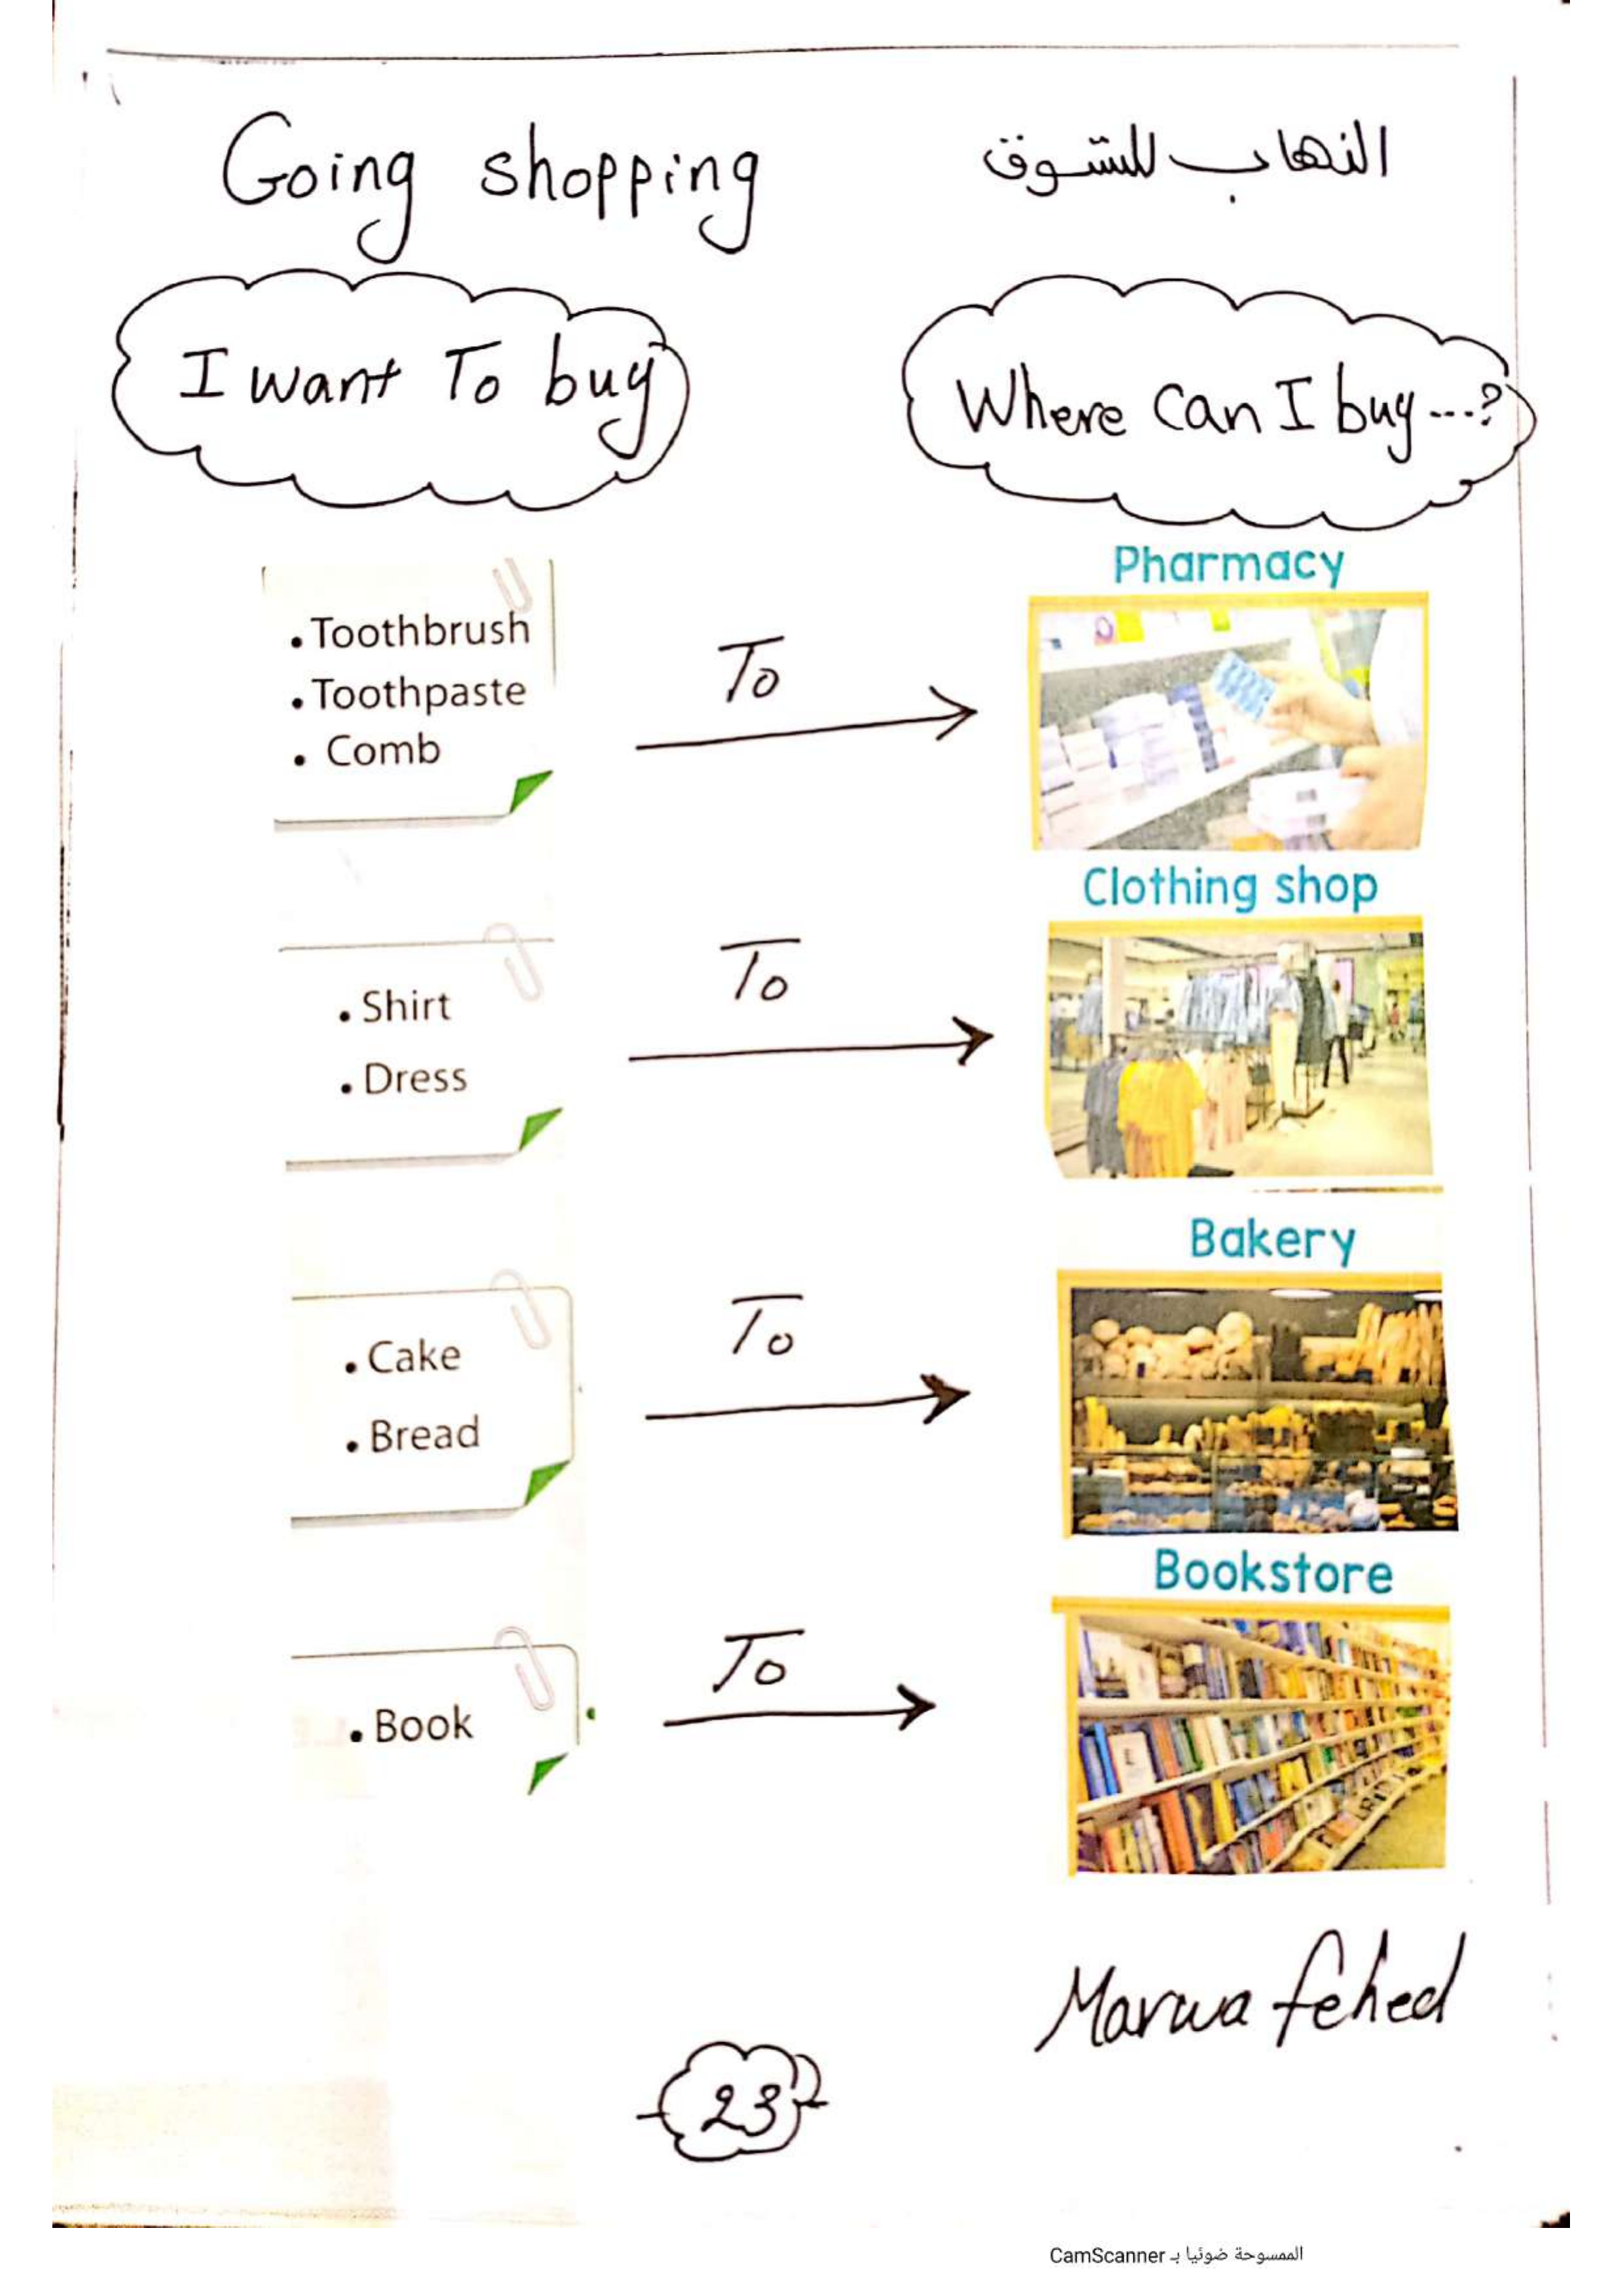 Going shopping
الذهاب للتسوق
I want To buy
Where Can I buy ---?
• Toothbrush
• Toothpaste
• Comb
To
Pharmacy
• Shirt
• Dress
To
Clothing shop
• Cake
• Bread
To
Bakery
• Book
To
Bookstore
Marwa fehed
23
الممسوحة ضوئيا بـ CamScanner